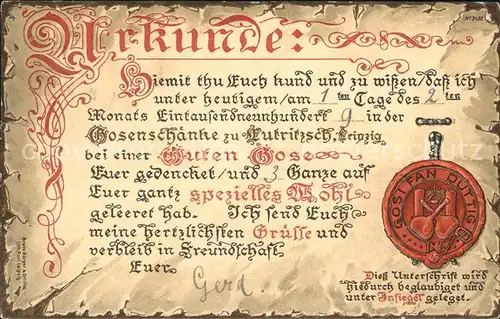 Urkunde:
Hiemit thu Euch kund und zu wißen/daß ich
unter heutigem/am 1 ten Tage des 2 ten
Monats Eintausendneunhundert 9 in der
Gosenschänke zu Eutritzsch, Leipzig
bei einer Guten Gose
Euer gedencket/und 3 Gantze auf
Euer gantz spezielles Wohl
geleeret hab. Ich send Euch
meine hertzlichsten Grüsse und
verbleib in Freundschaft
Euer
Gerd.
GOSI FAN DUTTIG
Dieß Unterschrift wird
hiedurch beglaubiget und
unter Insiegel geleget.